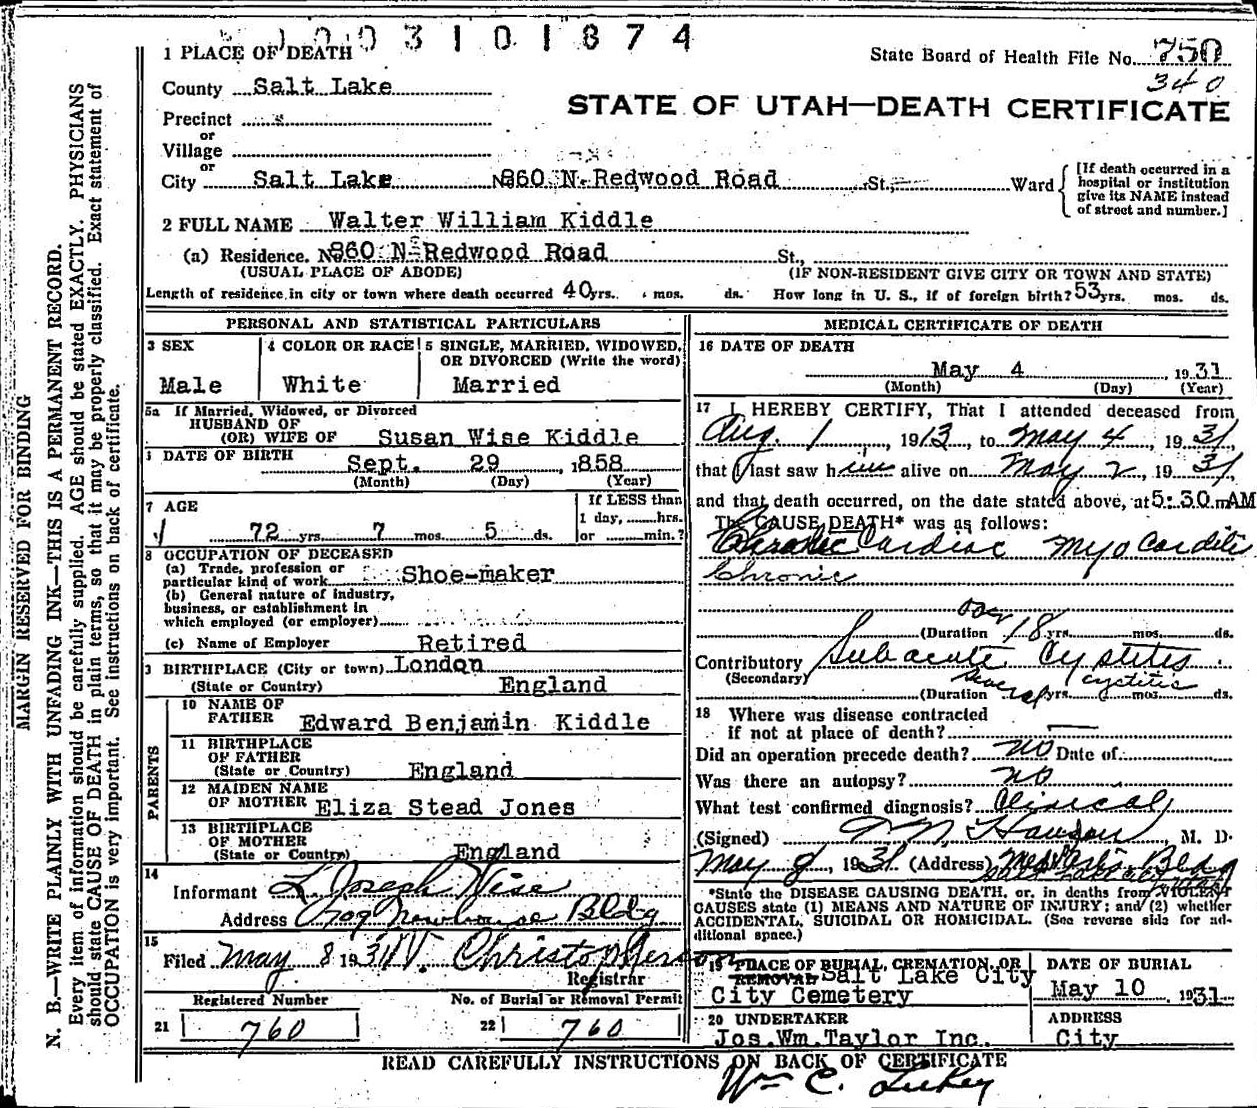 0 0 3 1 0 1 8 7 4
1 PLACE OF DEATH
State Board of Health File No. 750
340
County Salt Lake
STATE OF UTAH—DEATH CERTIFICATE
Precinct
or
Village
or
City Salt Lake No. 860 N. Redwood Road St., Ward
[If death occurred in a
hospital or institution
give its NAME instead
of street and number.]
2 FULL NAME Walter William Kiddle
(a) Residence. No. 860 N. Redwood Road St.,
(USUAL PLACE OF ABODE) (IF NON-RESIDENT GIVE CITY OR TOWN AND STATE)
Length of residence in city or town where death occurred 40 yrs. mos. ds. How long in U. S., if of foreign birth? 53 yrs. mos. ds.
PERSONAL AND STATISTICAL PARTICULARS
3 SEX
Male
4 COLOR OR RACE
White
5 SINGLE, MARRIED, WIDOWED,
OR DIVORCED (Write the word)
Married
5a If Married, Widowed, or Divorced
HUSBAND OF
(OR) WIFE OF Susan Wise Kiddle
DATE OF BIRTH
Sept. 29, 1858
(Month) (Day) (Year)
7 AGE
72 yrs. 7 mos. 5 ds.
If LESS than
1 day, hrs.
or min.?
8 OCCUPATION OF DECEASED
(a) Trade, profession or
particular kind of work Shoe-maker
(b) General nature of industry,
business, or establishment in
which employed (or employer)
(c) Name of Employer Retired
BIRTHPLACE (City or town) London
(State or Country) England
PARENTS
10 NAME OF
FATHER Edward Benjamin Kiddle
11 BIRTHPLACE
OF FATHER
(State or Country) England
12 MAIDEN NAME
OF MOTHER Eliza Stead Jones
13 BIRTHPLACE
OF MOTHER
(State or Country) England
14
Informant L. Joseph Wise
Address Newhouse Bldg
15
Filed May 8 1931 W. Christopherson
Registrar
Registered Number
21 760
No. of Burial or Removal Permit
22 760
MEDICAL CERTIFICATE OF DEATH
16 DATE OF DEATH
May 4, 1931
(Month) (Day) (Year)
17 I HEREBY CERTIFY, That I attended deceased from
Aug. 1, 1913, to May 4, 1931,
that I last saw him alive on May 2, 1931,
and that death occurred, on the date stated above, at 5:30 m AM
The CAUSE DEATH* was as follows:
Cardiac Myocarditis
Chronic
over
(Duration 18 yrs. mos. ds.
Contributory Subacute Cystitis
(Secondary) cystitis
Several
(Duration yrs. mos. ds.
18 Where was disease contracted
If not at place of death? —
Did an operation precede death? no Date of
Was there an autopsy? no
What test confirmed diagnosis? Clinical
(Signed) M. D.
May 8, 1931 (Address) Bldg
*State the DISEASE CAUSING DEATH, or, in deaths from VIOLENT
CAUSES state (1) MEANS AND NATURE OF INJURY; and (2) whether
ACCIDENTAL, SUICIDAL OR HOMICIDAL. (See reverse side for ad-
ditional space.)
19 PLACE OF BURIAL, CREMATION, OR
REMOVAL Salt Lake City
City Cemetery
DATE OF BURIAL
May 10, 1931
20 UNDERTAKER
Jos. Wm. Taylor Inc.
ADDRESS
City
READ CAREFULLY INSTRUCTIONS ON BACK OF CERTIFICATE
Wm C.
MARGIN RESERVED FOR BINDING
N. B.—WRITE PLAINLY WITH UNFADING INK—THIS IS A PERMANENT RECORD.
Every item of information should be carefully supplied. AGE should be stated EXACTLY. PHYSICIANS
should state CAUSE OF DEATH in plain terms, so that it may be properly classified. Exact statement of
OCCUPATION is very important. See instructions on back of certificate.